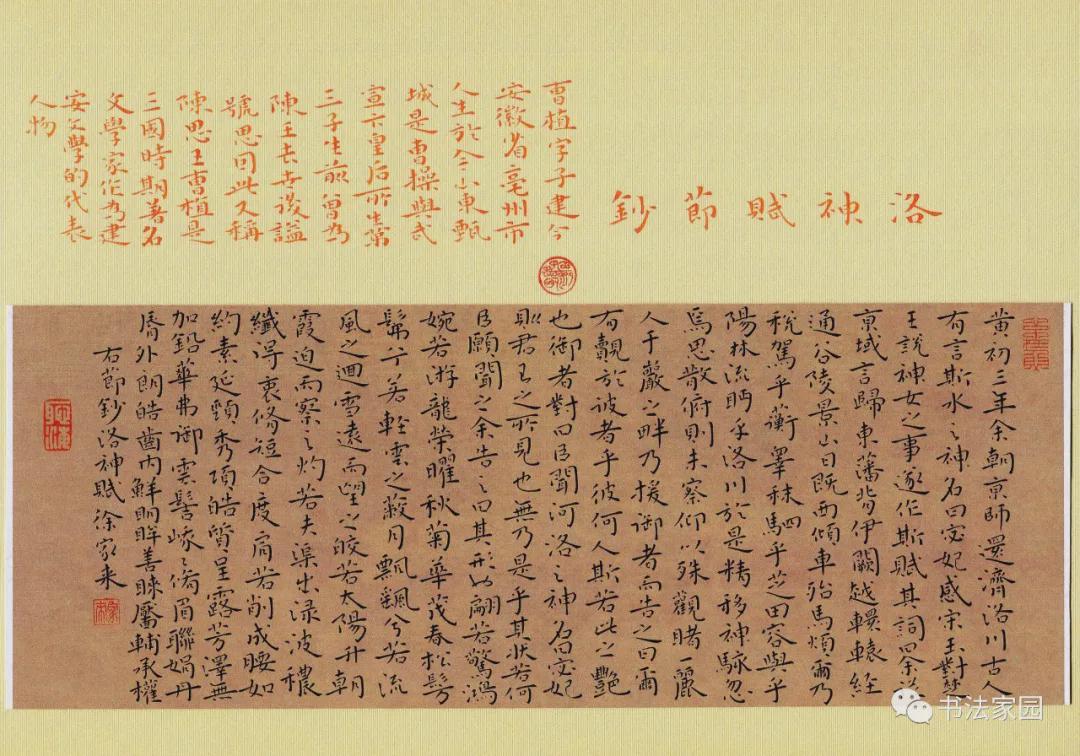 洛神賦節鈔
曹植字子建今
安徽省亳州市
人生於今山東甄
城是曹操與武
宣卞皇后所生第
三子生前曾為
陳王去世後謚
號思因此又稱
陳思王曹植是
三國時期著名
文學家作為建
安文學的代表
人物
黃初三年余朝京師還濟洛川古人
有言斯水之神名曰宓妃感宋玉對楚
王說神女之事遂作斯賦其詞曰余從
京域言歸東藩背伊闕越轘轅經
通谷陵景山日既西傾車殆馬煩爾乃
稅駕乎蘅睪秣駟乎芝田容與乎
陽林流眄乎洛川於是精移神駭忽
焉思散俯則未察仰以殊觀睹一麗
人于巖之畔乃援御者而告之曰爾
有覿於彼者乎彼何人斯若此之艷
也御者對曰臣聞河洛之神名曰宓妃
則君王之所見也無乃是乎其狀若何
臣願聞之余告之曰其形也翩若驚鴻
婉若游龍榮曜秋菊華茂春松髣
髴兮若輕雲之蔽月飄颻兮若流
風之迴雪遠而望之皎若太陽升朝
霞迫而察之灼若夫渠出淥波穠
纖得衷修短合度肩若削成腰如
約素延頸秀項皓質呈露芳澤無
加鉛華弗御雲髻峨峨脩眉聯娟丹
唇外朗皓齒內鮮明眸善睞靨輔承權
右節鈔洛神賦徐家來
书法家园